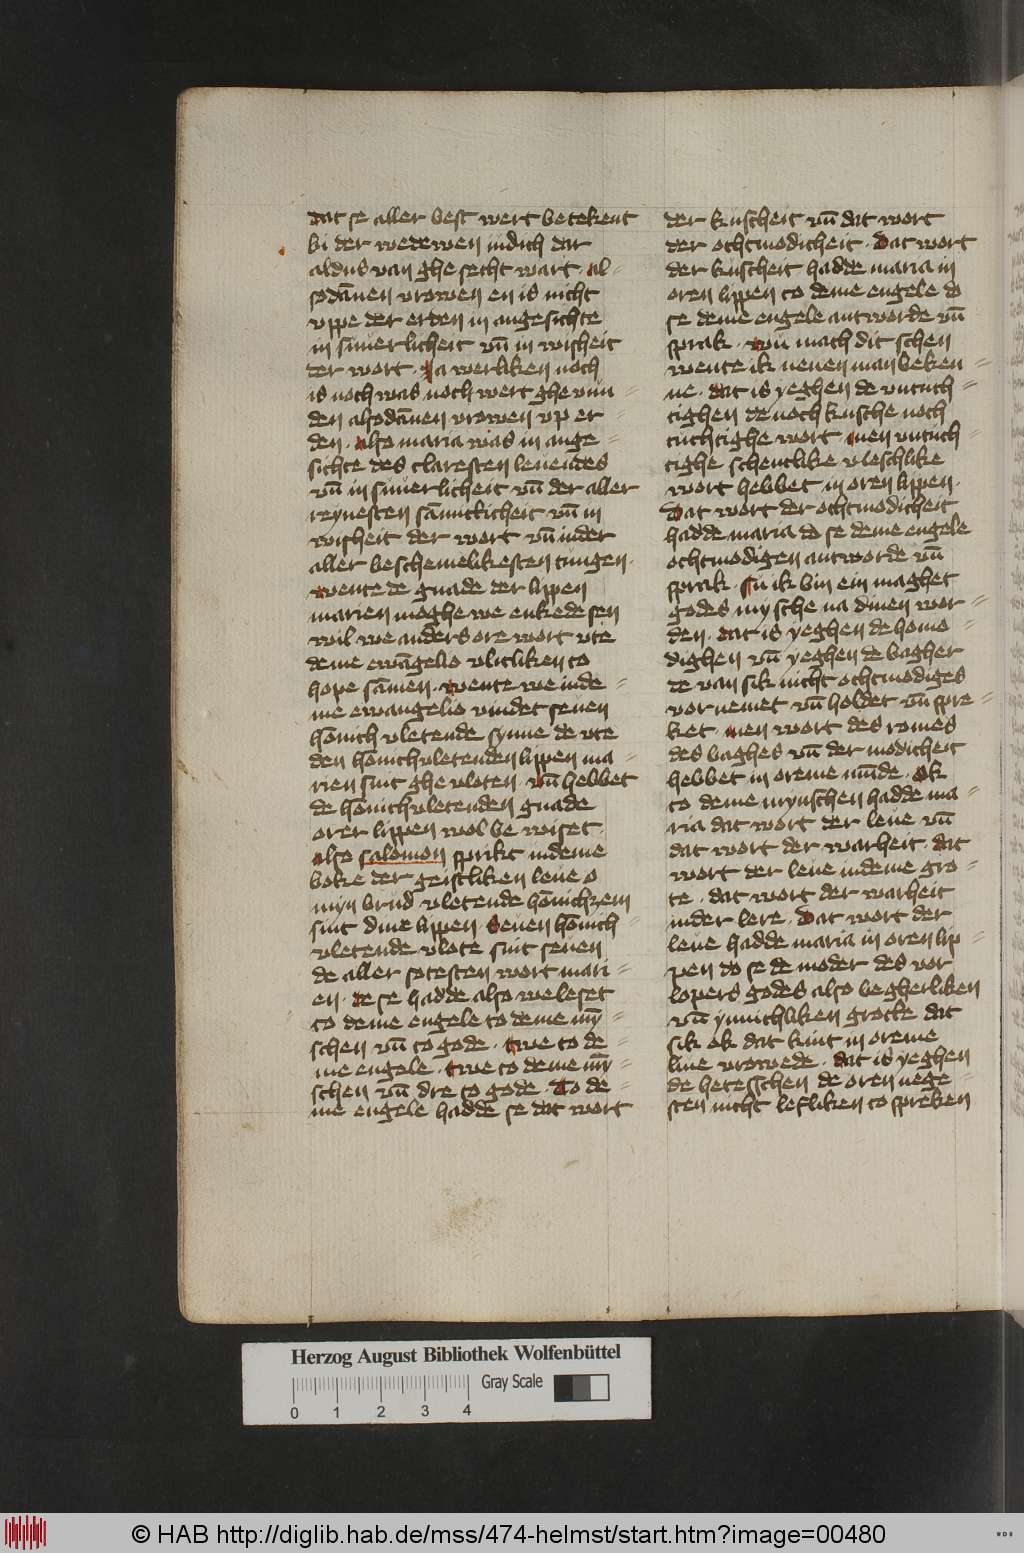 dat se aller best wert betekent
bi der wedewen iudich dar
aldus van ghe secht wart · al-
sodānen vrowen en is nicht
vppe der erden in angesichte
in suuerlicheit vn̄ in wisheit
der wort · ia werliken noch
is noch was noch wert ghe vun-
den alsodānen vrowen vp er-
den · also maria was in ange-
sichte des claresten leuendes
vn̄ in suuerlicheit vn̄ der aller
reynesten sāmtkicheit vn̄ in
wisheit der wort vn̄ in der
aller beschemelikesten tungen ·
wente de gnade der lippen
marien moghe we enkede sen
wil we anders ore wort vte
deme ewāgelio vlitliken to
hope sāmen · wente we in de-
me ewangelio vindet seuen
hōnich vletende synne de vte
den hōnichvletenden lippen ma-
rien sint ghe vloten · vn̄ hebbet
de hōnichvletenden gnade
orer lippen wol be wiset ·
also salomon sprikt in deme
boke der geistliken leue o
myn brud vletende hōnichzem
sint dine lippen · Seuen hōnich-
vletende vlote sint seuen
de aller sotesten wort mari-
en · de se hadde also we leset
to deme engele to deme my̅-
schen vn̄ to gode · twe to de-
me engele · twe to deme my̅-
schen vn̄ dre to gode · To de-
me engele hadde se dat wort
der kuscheit vn̄ dat wort
der othmodicheit · Dat wort
der kuscheit hadde maria in
oren lippen to deme engele do
se deme engele antworde vn̄
sprak · wu mach dit schen
wente ik nenen man beken-
ne · dat is yeghen de vntuch-
tighen de noch kusche noch
tuchtighe wort · men vntuch-
tighe schentlike vleschlike
wort hebbet in oren lippen ·
Dat wort der othmodicheit
hadde maria do se deme engele
othmodigen antworde vn̄
sprak · su ik bin ein maghet
godes my sche na dinen wor-
den · dat is yeghen de homo-
dighen vn̄ yeghen de bagher
de van sik nicht othmodiges
vor nemet vn̄ holdet vn̄ spre-
ket · men wort des romes
des baghes vn̄ der modicheit
hebbet in oreme mu̅de · Ok
to deme mynschen hadde ma-
ria dat wort der leue vn̄
dat wort der warheit · dat
wort der leue in deme gro-
te · dat wort der warheit
in der lere · Dat wort der
leue hadde maria in oren lip-
pen do se de moder des vor
lopers godes also begherliken
vn̄ ynnichliken grotte dat
sik ok dat kint in oreme
liue vrowede · dat is yeghen
de hetesschen de oren nege-
sten nicht lefliken to spreken
Herzog August Bibliothek Wolfenbüttel
Gray Scale
0 1 2 3 4
© HAB http://diglib.hab.de/mss/474-helmst/start.htm?image=00480